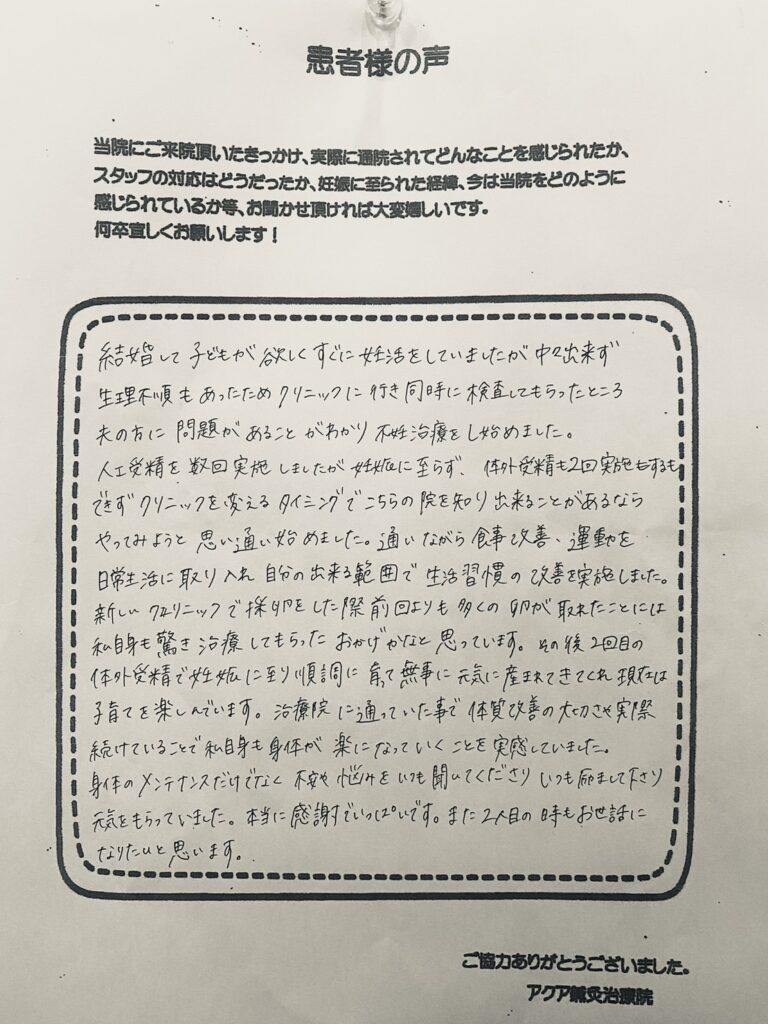 患者様の声
当院にご来院頂いたきっかけ、実際に通院されてどんなことを感じられたか、
スタッフの対応はどうだったか、妊娠に至られた経緯、今は当院をどのように
感じられているか等、お聞かせ頂ければ大変嬉しいです。
何卒宜しくお願いします！
結婚して子どもが欲しくすぐに妊活をしていましたが中々出来ず
生理不順もあったためクリニックに行き同時に検査してもらったところ
夫の方に問題があることがわかり不妊治療をし始めました。
人工受精を数回実施しましたが妊娠に至らず、体外受精も2回実施もするも
できずクリニックを変えるタイミングでこちらの院を知り出来ることがあるなら
やってみようと思い通い始めました。通いながら食事改善、運動を
日常生活に取り入れ自分の出来る範囲で生活習慣の改善を実施しました。
新しいクリニックで採卵をした際前回よりも多くの卵が取れたことには
私自身も驚き治療してもらったおかげかなと思っています。その後2回目の
体外受精で妊娠に至り順調に育って無事に元気に産まれてきてくれ現在は
子育てを楽しんでいます。治療院に通っていた事で体質改善の大切さや実際
続けていることで私自身も身体が楽になっていくことを実感していました。
身体のメンテナンスだけでなく不安や悩みをいつも聞いてくださりいつも励まして下さり
元気をもらっていました。本当に感謝でいっぱいです。また2人目の時もお世話に
なりたいと思います。
ご協力ありがとうございました。
アクア鍼灸治療院